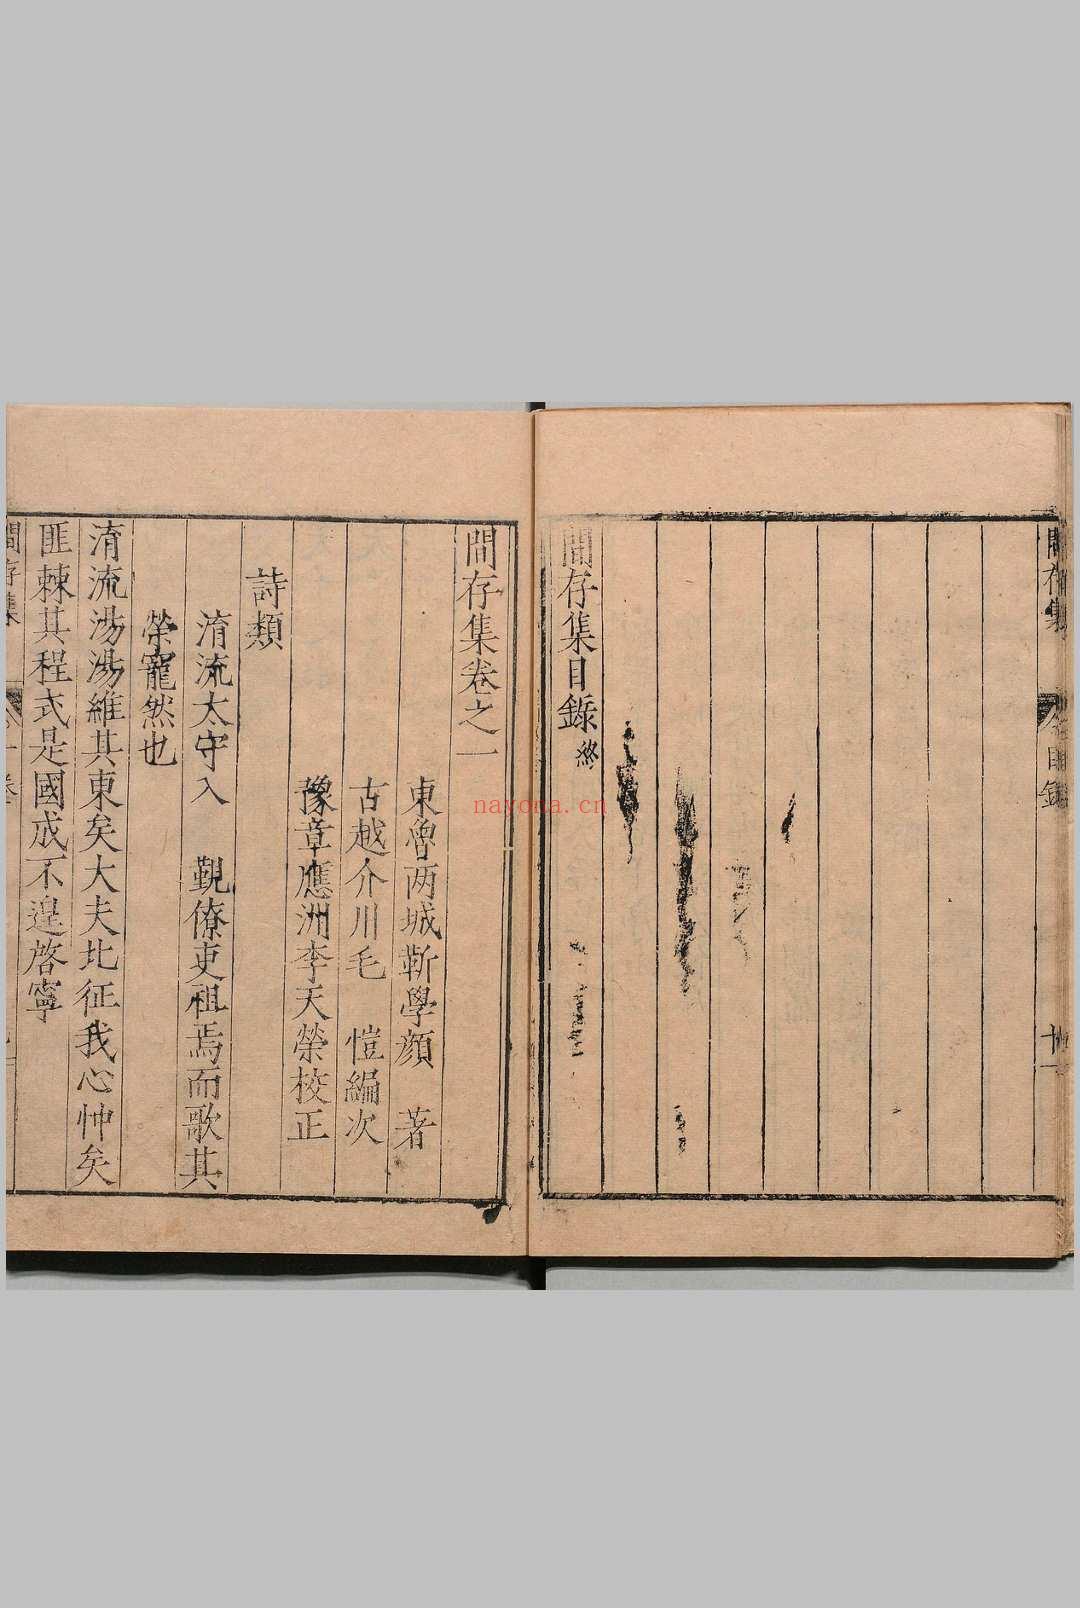 間存集
目錄
十一
間存集目錄終
間存集卷之一
東魯两城靳學顔　著
古越介川毛　愷編次
豫章應洲李天榮校正
詩類
淯流太守入　覲僚吏祖焉而歌其
榮寵然也
淯流湯湯維其東矣大夫北征我心忡矣
匪棘其程式是國成不遑啓寧
間存集
nayona.cn